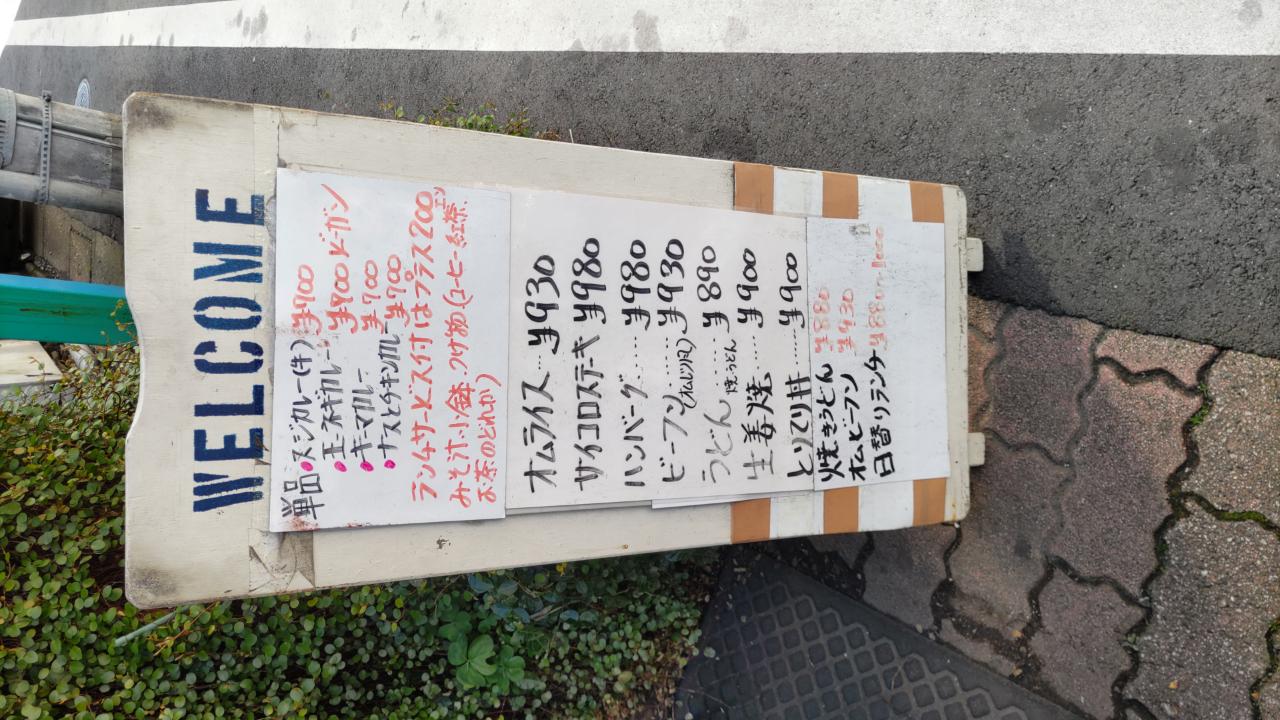 WELCOME
単品 ・スジカレー(牛) ¥700
・玉ネギカレー ¥700 ビーガン
・キーマカレー ¥700
・ナスとチキンカレー ¥700
ランチサービス付はプラス200エン
みそ汁、小鉢、つけ物、(コーヒー紅茶、
お茶のどれか)
オムライス… ¥930
サイコロステーキ ¥980
ハンバーグ…… ¥980
ビーフン…… ¥930
(オムレツ風)
うどん…… ¥890
焼うどん
生姜焼…… ¥900
とりてり丼…… ¥900
焼きうどん ¥880
オムビーフン ¥930
日替りランチ ¥880~1000